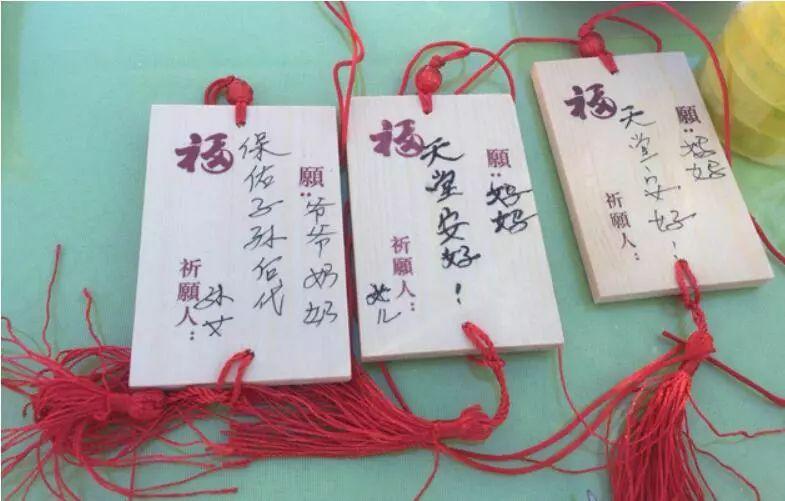 願：爷爷奶奶
保佑子孙后代
福
祈願人：孙女
願：妈妈
天堂安好！
福
祈願人：女儿
願：妈妈
天堂安好！
福
祈願人：